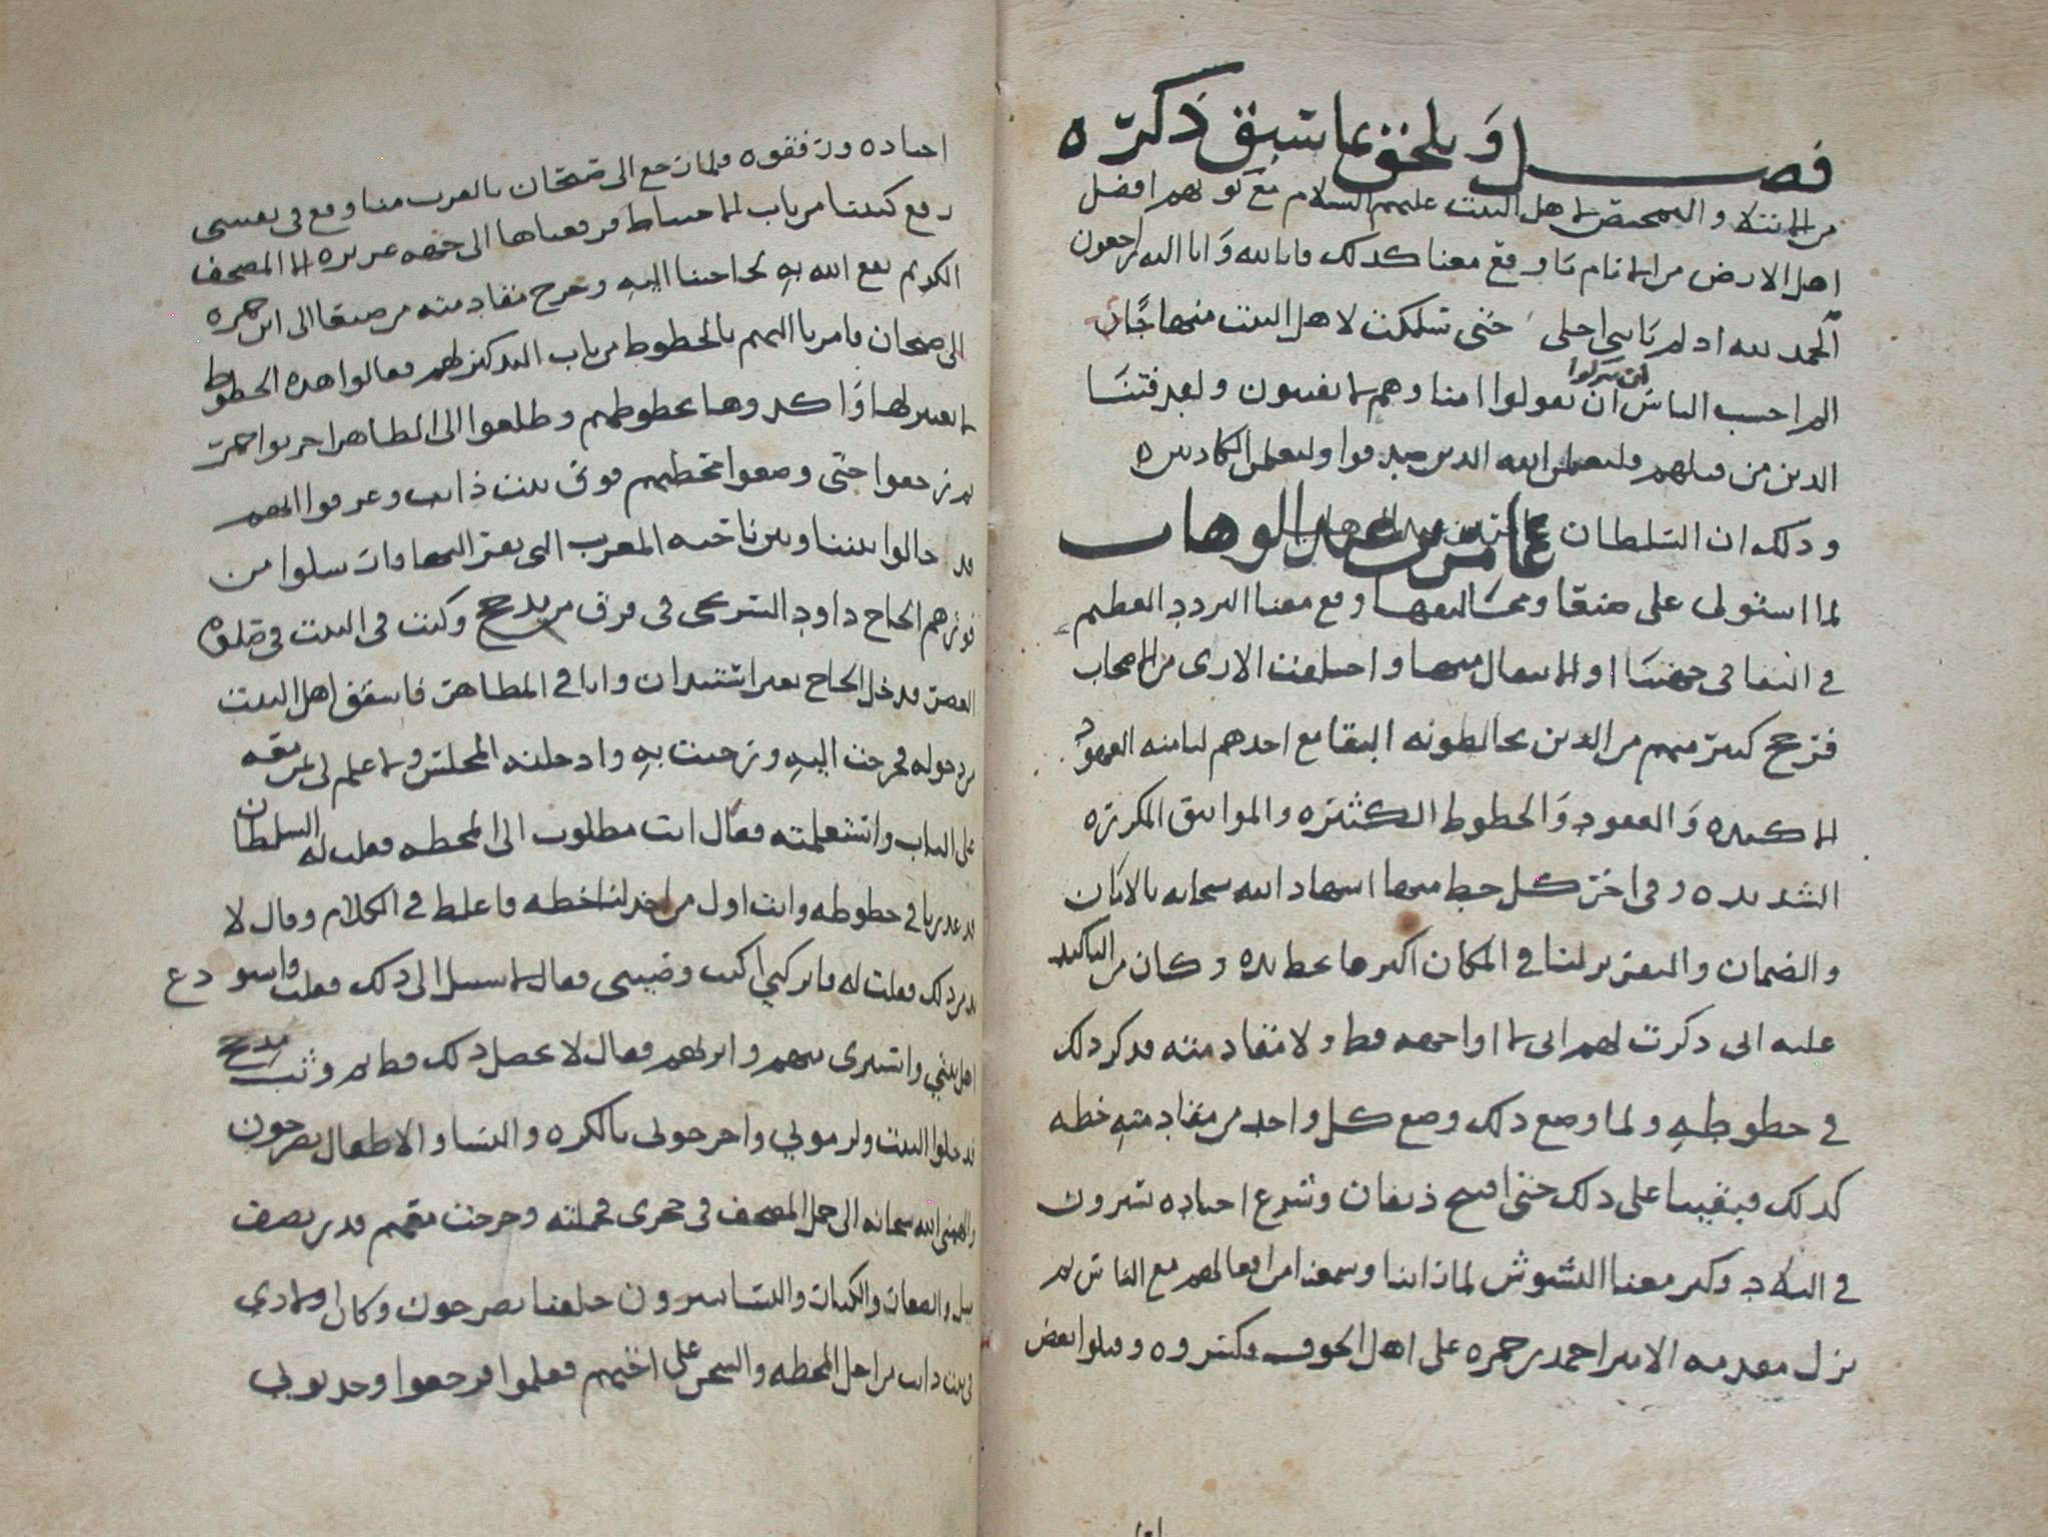 فصل ويلحق بما سبق ذكره
من الابتلا والتمحيص لاهل البيت عليهم السلام مع كونهم افضل
اهل الارض من الانام ما وقع معنا كذلك فانا لله وانا اليه راجعون
الحمد لله اذ لم ياتني اجلي حتى سلكت لاهل البيت منهاجا
الم احسب الناس ان يتركوا ان يقولوا امنا وهم لا يفتنون ولقد فتنا
الذين من قبلهم فليعلمن الله الذين صدقوا وليعلمن الكاذبين
وذلك ان السلطان عامر بن عبد الوهاب
لما استولى على صنعا ومخاليفها وقع معنا التردد العظيم
في البقا في جهتنا او الانتقال منها واختلفت الارى من الاصحاب
فترجح كثير منهم من الذين يخالطونه البقا مع اخذهم لنا منه العهود
الاكيده والعقود والخطوط الكثيره والمواثيق المكرره
الشديده وفي اخر كل خط منها اشهاد الله سبحانه بالامان
والضمان والتقرير لنا في المكان اكثرها بخط يده وكان من التاكيد
عليه اني ذكرت لهم اني لا اواجهه قط ولا مقادمته فذكر ذلك
في خطوطه ولما وضع ذلك وضع كل واحد من مقادمته خطه
كذلك فبقينا على ذلك حتى افتتح ذيفان وشرع اجناده يسرون
في البلاد وكثر معنا التشوش لما راينا وسمعنا من افعالهم مع الناس ثم
نزل مقدمه الامير احمد بن حمزه على اهل الجوف وكسروه وقتلوا بعض
اجناده ورفقوه فلما رجع الى ضحان بالقرب منا وقع في نفسي
رفع كتبنا من باب الاحتياط فرفعناها الى جهه عزيزه الا المصحف
الكريم نفع الله به لحاجتنا اليه وخرج مقادمته من صنعا الى ابن حمزه
الى ضحان فامرنا اليهم بالخطوط من باب التذكير لهم فقالوا هذه الخطوط
لا تغيير لها واكدوها بخطوطهم وطلعوا الى الظاهر اخربوا حمر
ثم رجعوا حتى وضعوا محطهم فوق بيت ذانب وعرفوا انهم
قد حالوا بيننا وبين ناحيه المغرب التي بعض السماوات سلوا من
فورهم الحاج داود الشريحي في فرق من مدحج وكنت في البيت في صلوة
العصر فدخل الحاج بغير استيذان وانا في المطاهر فاشفق اهل البيت
من دخوله فخرجت اليه ورحبت به وادخلته المجلس ولا علم لي بمن معه
على الباب واستعلمته فقال انت مطلوب الى المحطه فقلت له السلطان
قد غدرنا في خطوطه وانت اول من اخذ لنا خطه فاغلظ في الكلام وقال لا
بد من ذلك فقلت له فاتركني اكتب وصيتي فقال لا سبيل الى ذلك فقلت فاستودع
اهل بيتي واشترى منهم وابرا لهم فقال لا يحصل ذلك قط ثم وثب مدحج
فدخلوا البيت ولزموني واخرجوني بالكره والنسا والاطفال يصرخون
والهمني الله سبحانه الى حمل المصحف في حجري فحملته وخرجت معهم قدر نصف
ميل والضعات والبنات والنسا يسرون خلفنا يصرخون وكان اولادي
في بيت ذانب من اجل المحطه والسحر على اختهم فعلموا فرجعوا وحدثوني